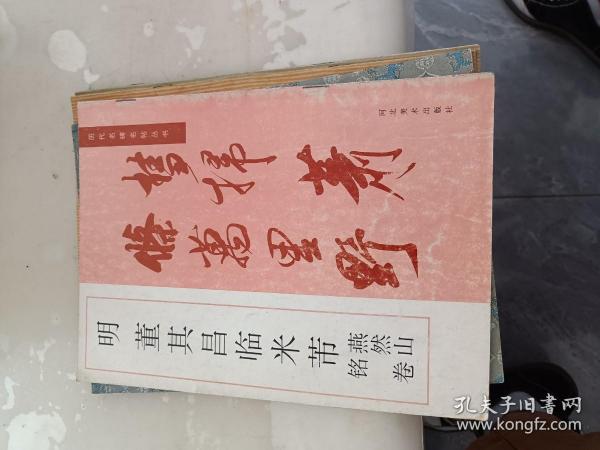 历代名碑名帖丛书
河北美术出版社
彗掃蕭
條萬里野
明 董其昌临米芾
燕然山
铭卷
孔夫子旧书网
www.kongfz.com